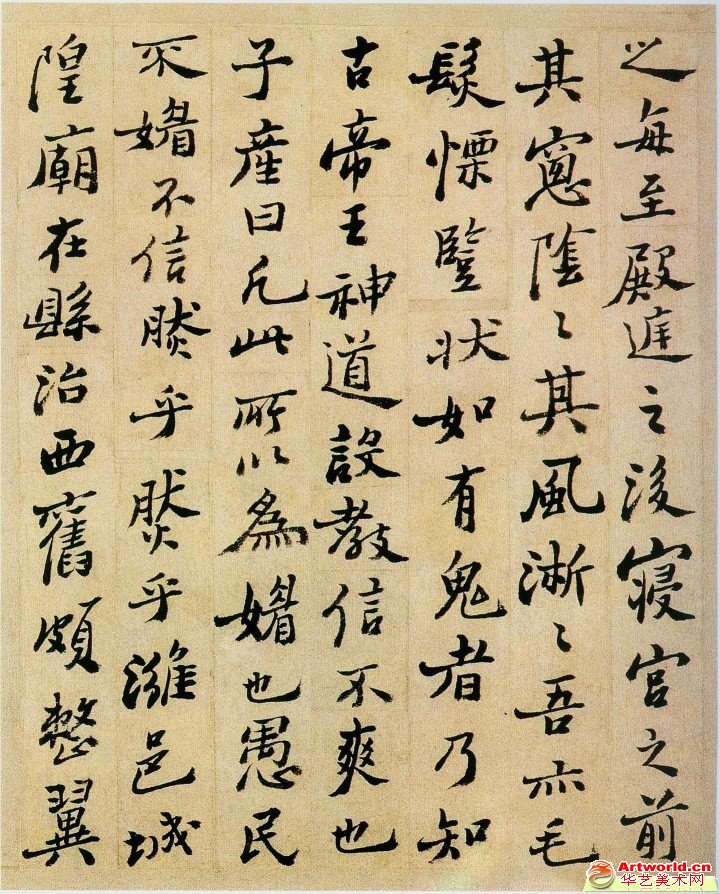 之每至殿庭之後寢宮之前
其窻陰〻其風淅〻吾亦毛
髮慄豎狀如有鬼者乃知
古帝王神道設教信不爽也
子產曰凡此所以為媚也愚民
不媚不信然乎然乎濰邑城
隍廟在縣治西舊頗整翼
Artworld.cn
华艺美术网